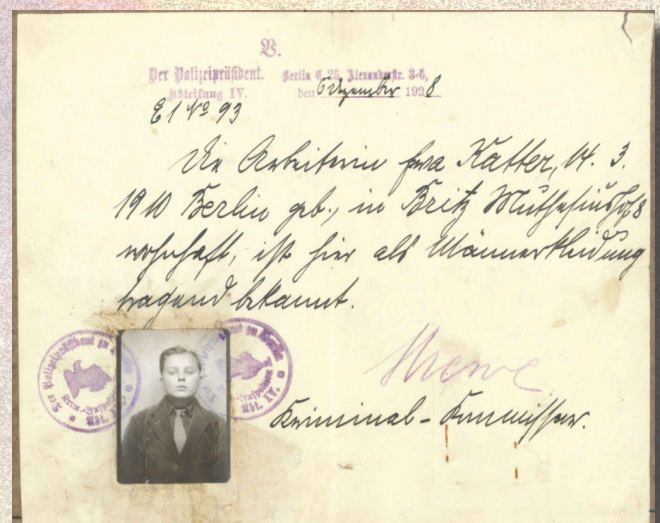 V.
Der Polizeipräsident.
Abteilung IV.
Berlin C. 25, Alexanderstr. 3-6,
den 6 Dezember 1928
E1 No 93
Die Arbeiterin Eva Katter, 14. 3.
1910 Berlin geb., in Britz Muthesiushof 8
wohnhaft, ist hier als Männerkleidung
tragend bekannt.
Kriminal-Kommissar.
Der Polizeipräsident zu Berlin
Abt. IV.